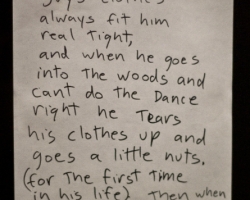 always fit him
real Tight,
and when he goes
into The woods and
cant do the Dance
right he Tears
his clothes up and
goes a little nuts.
(for The first Time
in his life) Then when